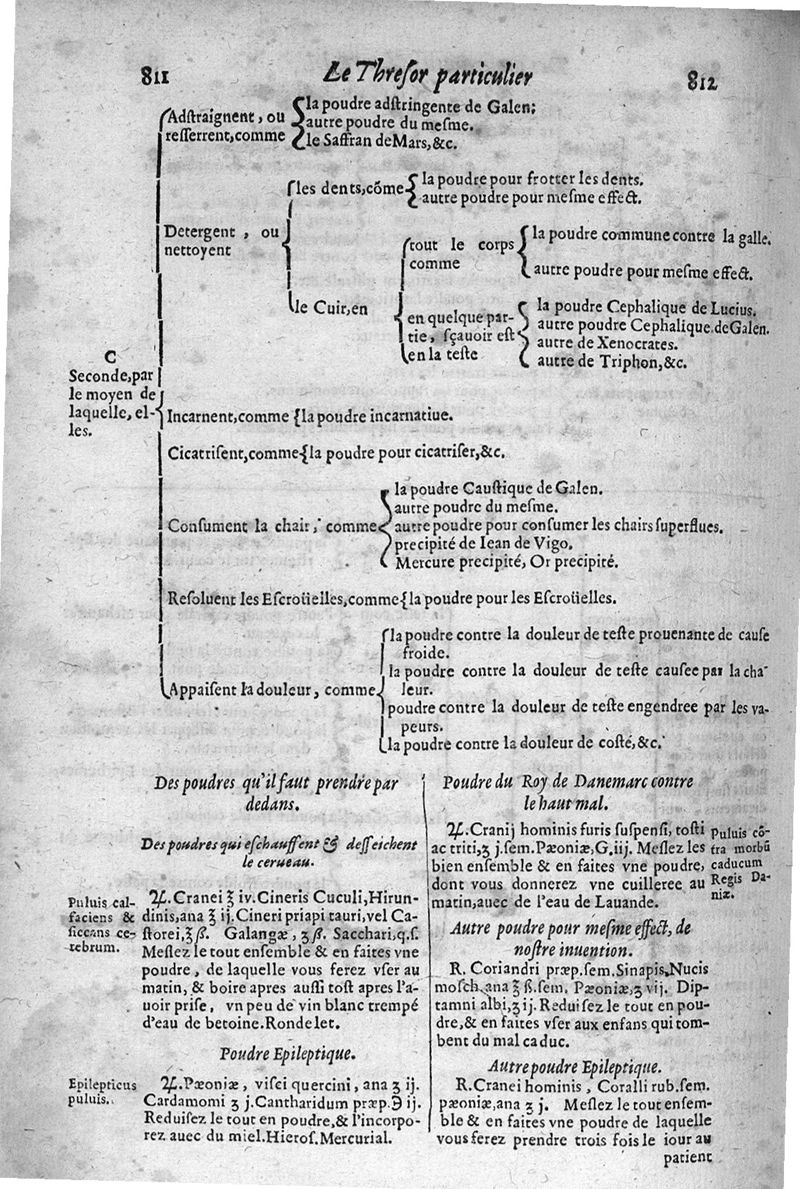 811
Le Threſor particulier
812
Adſtraignent, ou
reſſerrent, comme
la poudre adſtringente de Galen;
autre poudre du meſme.
le Saffran de Mars, &c.
Detergent , ou
nettoyent
les dents, cōme
la poudre pour frotter les dents.
autre poudre pour meſme effect.
le Cuir, en
tout le corps
comme
la poudre commune contre la galle.
autre poudre pour meſme effect.
en quelque par-
tie, ſçauoir eſt
en la teſte
la poudre Cephalique de Lucius.
autre poudre Cephalique de Galen.
autre de Xenocrates.
autre de Triphon, &c.
C
Seconde, par
le moyen de
laquelle, el-
les.
Incarnent, comme {la poudre incarnatiue.
Cicatriſent, comme {la poudre pour cicatriſer, &c.
Conſument la chair, comme
la poudre Cauſtique de Galen.
autre poudre du meſme.
autre poudre pour conſumer les chairs ſuperflues.
precipité de Iean de Vigo.
Mercure precipité, Or precipité.
Reſoluent les Eſcroüelles, comme {la poudre pour les Eſcroüelles.
Appaiſent la douleur, comme
la poudre contre la douleur de teſte prouenante de cauſe
froide.
la poudre contre la douleur de teſte cauſee par la cha-
leur.
poudre contre la douleur de teſte engendree par les va-
peurs.
la poudre contre la douleur de coſté, &c.
Des poudres qu'il faut prendre par
dedans.
Des poudres qui eſchauffent & deſſeichent
le cerueau.
Puluis cal-
faciens &
ſiccans ce-
rebrum.
♃. Cranei ℥ iv. Cineris Cuculi, Hirun-
dinis, ana ℥ ij. Cineri priapi tauri, vel Ca-
ſtorei, ℥ ß. Galangæ, ʒ ß. Sacchari, q. ſ.
Meſlez le tout enſemble & en faites vne
poudre, de laquelle vous ferez vſer au
matin, & boire apres auſſi toſt apres l'a-
uoir priſe, vn peu de vin blanc trempé
d'eau de betoine. Rondelet.
Poudre Epileptique.
Epilepticus
puluis.
♃. Pæoniæ, viſci quercini, ana ʒ ij.
Cardamomi ʒ j. Cantharidum præp. ℈ ij.
Reduiſez le tout en poudre, & l'incorpo-
rez auec du miel. Hieroſ. Mercurial.
Poudre du Roy de Danemarc contre
le haut mal.
♃. Cranij hominis furis ſuſpenſi, toſti
ac triti, ʒ j. ſem. Pæoniæ, G. iij. Meſlez les
bien enſemble & en faites vne poudre,
dont vous donnerez vne cuilleree au
matin, auec de l'eau de Lauande.
Puluis cō-
tra morbū
caducum
Regis Da-
niæ.
Autre poudre pour meſme effect, de
noſtre inuention.
R. Coriandri præp. ſem. Sinapis, Nucis
moſch. ana ʒ ß. ſem. Pæoniæ, ʒ vij. Dip-
tamni albi, ʒ ij. Reduiſez le tout en pou-
dre, & en faites vſer aux enfans qui tom-
bent du mal caduc.
Autre poudre Epileptique.
R. Cranei hominis , Coralli rub. ſem.
pæoniæ, ana ʒ j. Meſlez le tout enſem-
ble & en faites vne poudre de laquelle
vous ferez prendre trois fois le iour au
patient